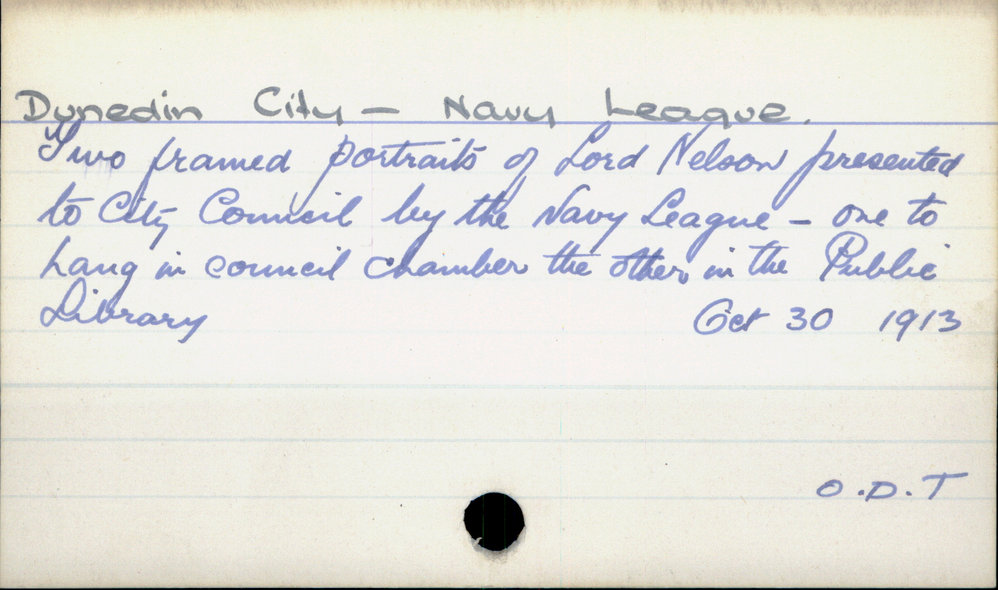 Dunedin City - Navy League.
Two framed portraits of Lord Nelson presented
to City Council by the Navy League - one to
hang in council chamber the other in the Public
Library Oct 30 1913
O.D.T